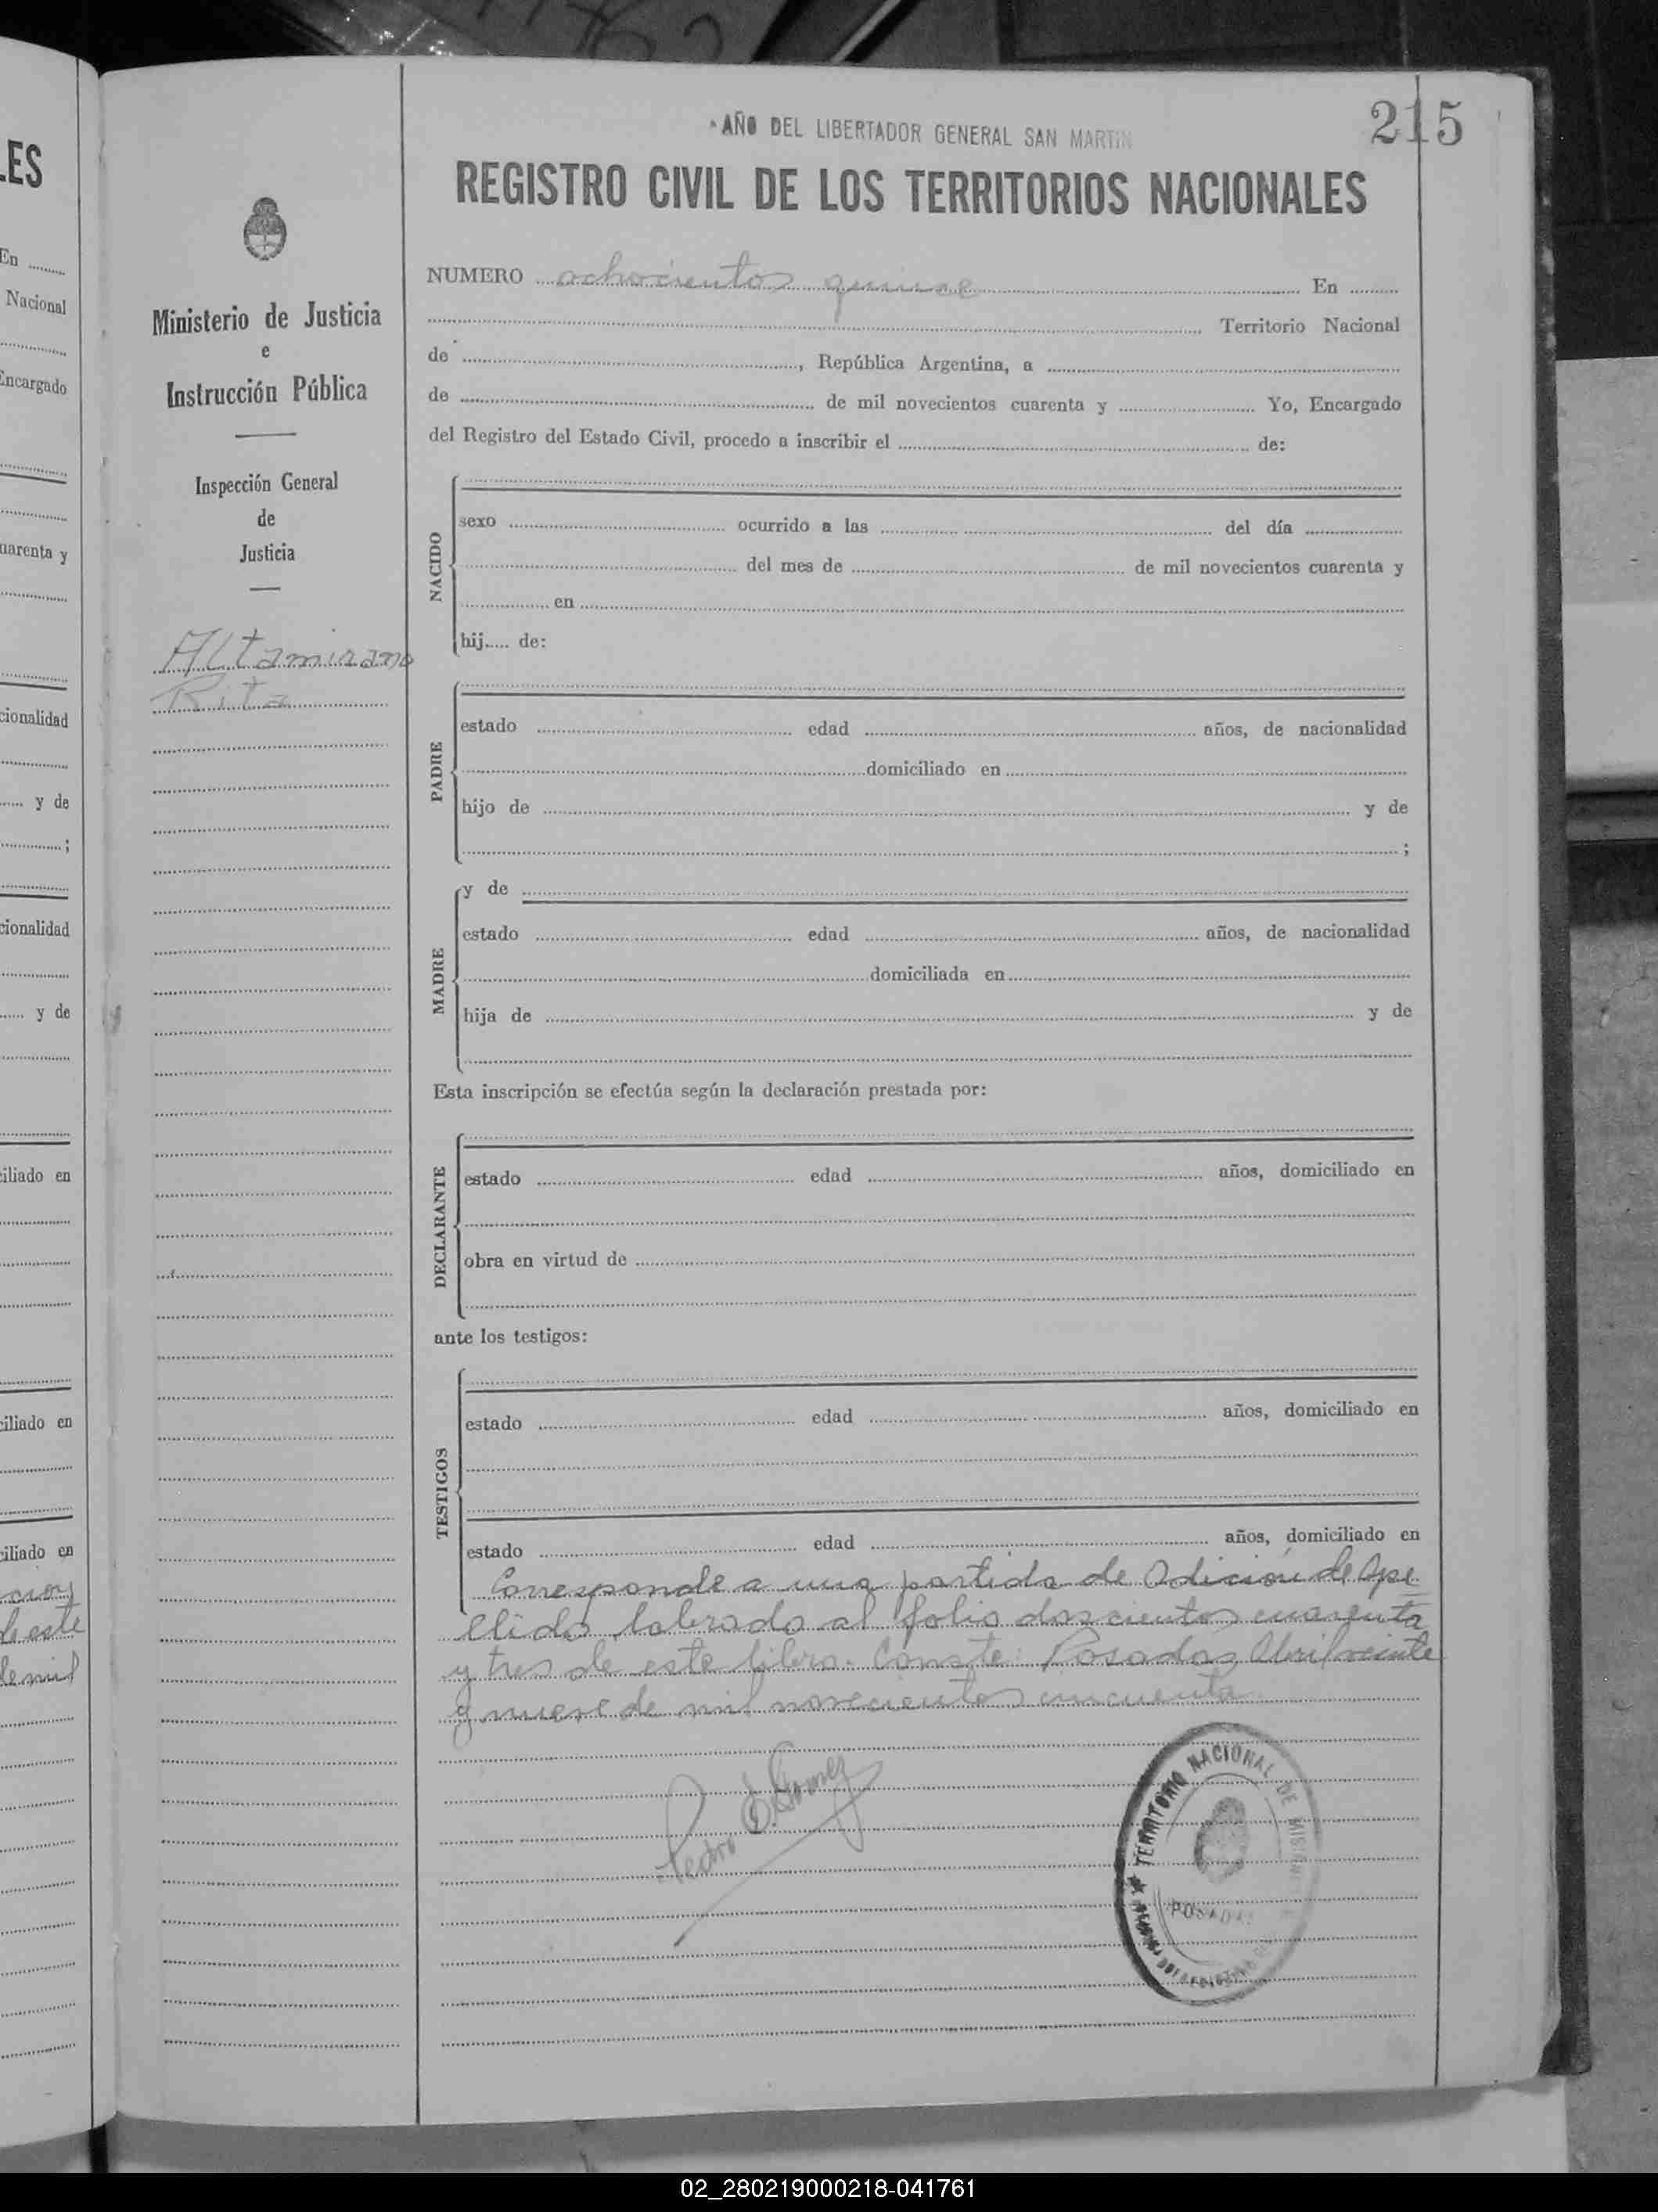 215
AÑO DEL LIBERTADOR GENERAL SAN MARTIN
REGISTRO CIVIL DE LOS TERRITORIOS NACIONALES
NUMERO ochocientos quince En
Territorio Nacional
de , República Argentina, a
de de mil novecientos cuarenta y Yo, Encargado
del Registro del Estado Civil, procedo a inscribir el de:
NACIDO
sexo ocurrido a las del día
del mes de de mil novecientos cuarenta y
en
hij..... de:
PADRE
estado edad años, de nacionalidad
domiciliado en
hijo de y de
;
MADRE
y de
estado edad años, de nacionalidad
domiciliada en
hija de y de
Esta inscripción se efectúa según la declaración prestada por:
DECLARANTE
estado edad años, domiciliado en
obra en virtud de
ante los testigos:
TESTIGOS
estado edad años, domiciliado en
estado edad años, domiciliado en
Corresponde a una partida de Adición de Ape
llido labrada al folio doscientos cuarenta
y tres de este libro. Conste: Posadas, Abril veinte
y nueve de mil novecientos cincuenta.
Pedro E. Gomez
TERRITORIO NACIONAL DE MISIONES
POSADAS
Ministerio de Justicia
e
Instrucción Pública
Inspección General
de
Justicia
Altamirano
Rita
LES
En
Nacional
Encargado
uarenta y
cionalidad
y de
;
cionalidad
y de
ciliado en
ciliado en
ciliado en
cion
de este
de mil
02_280219000218-041761